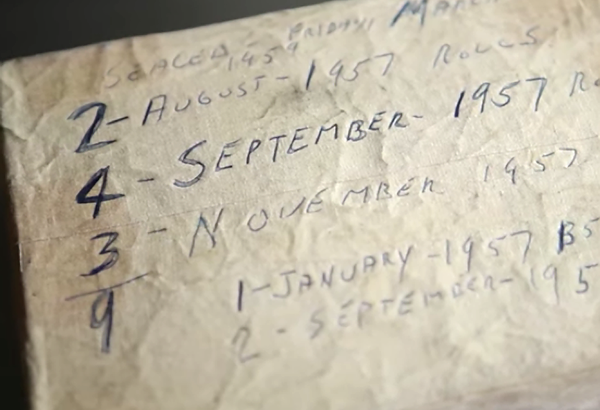 SEALED - FRIDAY, MARCH
1959
2 - AUGUST - 1957 ROLLS
4 - SEPTEMBER - 1957
3 - NOVEMBER 1957
9
1 - JANUARY - 1957
2 - SEPTEMBER - 195